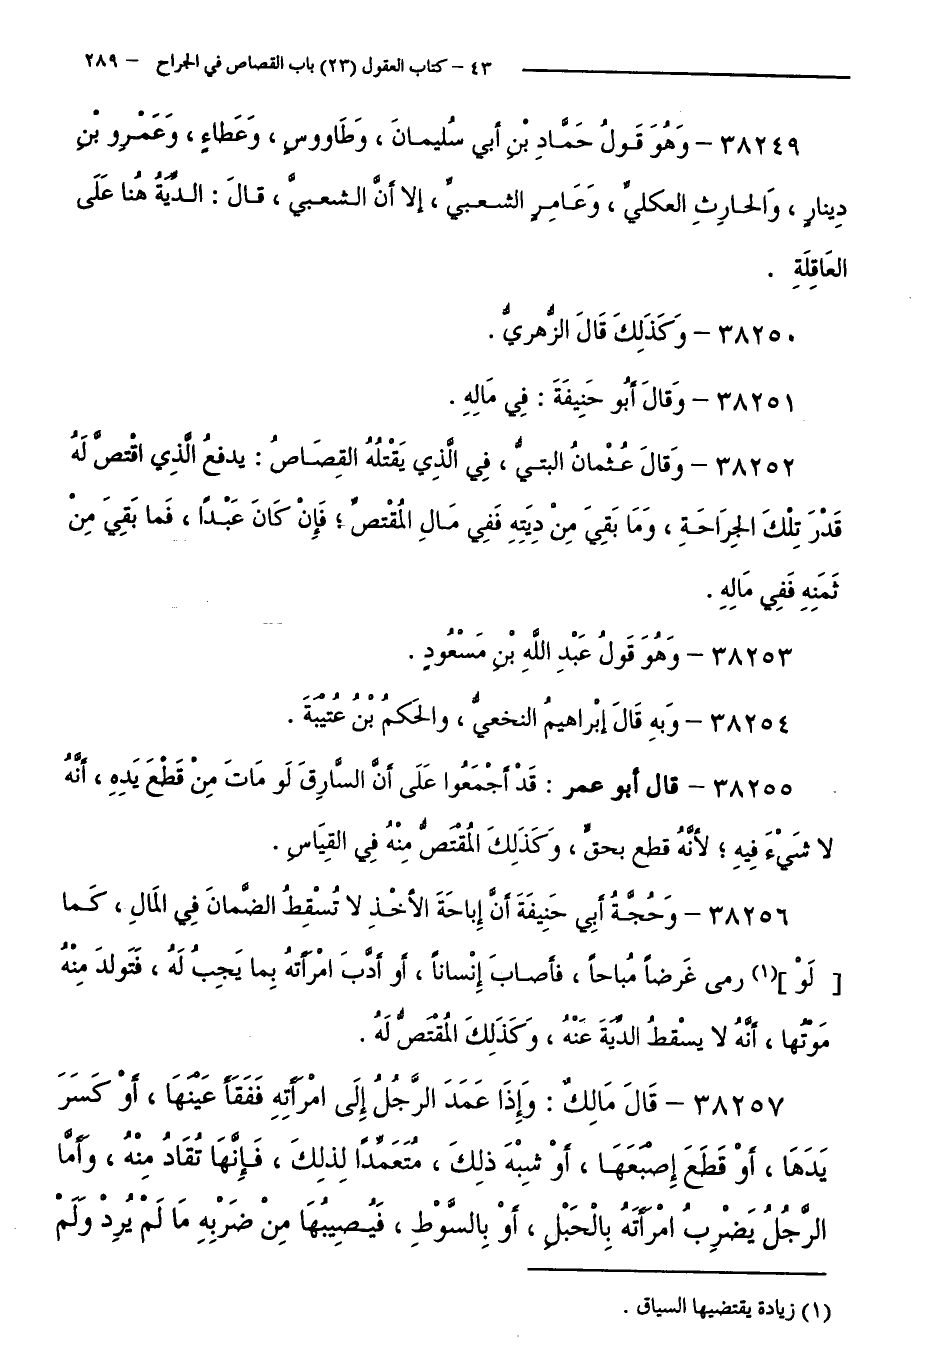 ٤٣ – كتاب العقول (٢٣) باب القصاص في الجراح – ٢٨٩
٣٨٢٤٩ – وَهُوَ قَولُ حَمَّادِ بْنِ أبي سُليمانَ ، وَطَاووسٍ ، وَعَطَاءٍ ، وَعَمْرِو بْنِ
دِينارٍ ، وَالحارِثِ العكليِّ ، وَعَامِرِ الشعبيِّ ، إلا أنَّ الشعبيَّ ، قالَ : الدِّيَةُ هُنا عَلَى
العَاقِلَةِ .
٣٨٢٥٠ – وَكَذَلِكَ قَالَ الزُّهريُّ .
٣٨٢٥١ – وَقالَ أَبُو حَنِيفَةَ : فِي مَالِهِ .
٣٨٢٥٢ – وَقَالَ عُثْمانُ البتيُّ ، فِي الَّذِي يَقْتُلُهُ القِصَاصُ : يدفعُ الَّذِي اقْتصَّ لَهُ
قَدْرَ تِلْكَ الجِرَاحَةِ ، وَمَا بَقِيَ مِنْ دِيَتِهِ فَفِي مَالِ المُقْتصِّ ؛ فَإِنْ كَانَ عَبْدًا ، فَما بَقِيَ مِنْ
ثَمَنِهِ فَفِي مَالِهِ .
٣٨٢٥٣ – وَهُوَ قَولُ عَبْدِ اللَّهِ بْنِ مَسْعُودٍ .
٣٨٢٥٤ – وَبِهِ قَالَ إِبْراهيمُ النخعيُّ ، والحَكَمُ بْنُ عُتَيْبَةَ .
٣٨٢٥٥ – قال أبو عمر : قَدْ أَجْمَعُوا عَلَى أَنَّ السارِقَ لَو مَاتَ مِنْ قَطْعِ يَدِهِ ، أَنَّهُ
لا شَيْءَ فِيهِ ؛ لأنَّهُ قطع بحقٍّ ، وَكَذَلِكَ المُقْتَصُّ مِنْهُ فِي القِيَاسِ .
٣٨٢٥٦ – وَحُجَّةُ أَبِي حَنِيفَةَ أَنَّ إِباحَةَ الأخْذِ لا تُسْقِطُ الضَّمانَ فِي المَالِ ، كَما
[ لَوْ ](١) رمى غَرضاً مُباحاً ، فأصابَ إِنْساناً ، أو أدَّبَ امْرأتَهُ بِما يَجِبُ لَهُ ، فَتَولدَ مِنْهُ
مَوْتُها ، أَنَّهُ لا يسْقطُ الدِّيَةَ عَنْهُ ، وَكَذَلِكَ المُقْتَصُّ لَهُ .
٣٨٢٥٧ – قَالَ مَالِكٌ : وَإِذَا عَمَدَ الرَّجُلُ إِلَى امْرَأَتِهِ فَفَقَأَ عَيْنَهَا ، أَوْ كَسَرَ
يَدَهَا ، أَوْ قَطَعَ إِصْبَعَهَا ، أَوْ شِبْهَ ذلِكَ ، مُتَعَمِّدًا لِذلِكَ ، فَإِنَّهَا تُقَادُ مِنْهُ ، وَأَمَّا
الرَّجُلُ يَضْرِبُ امْرَأَتَهُ بِالْحَبْلِ ، أَوْ بِالسَّوْطِ ، فَيُصِيبُهَا مِنْ ضَرْبِهِ مَا لَمْ يُرِدْ وَلَمْ
(١) زيادة يقتضيها السياق .